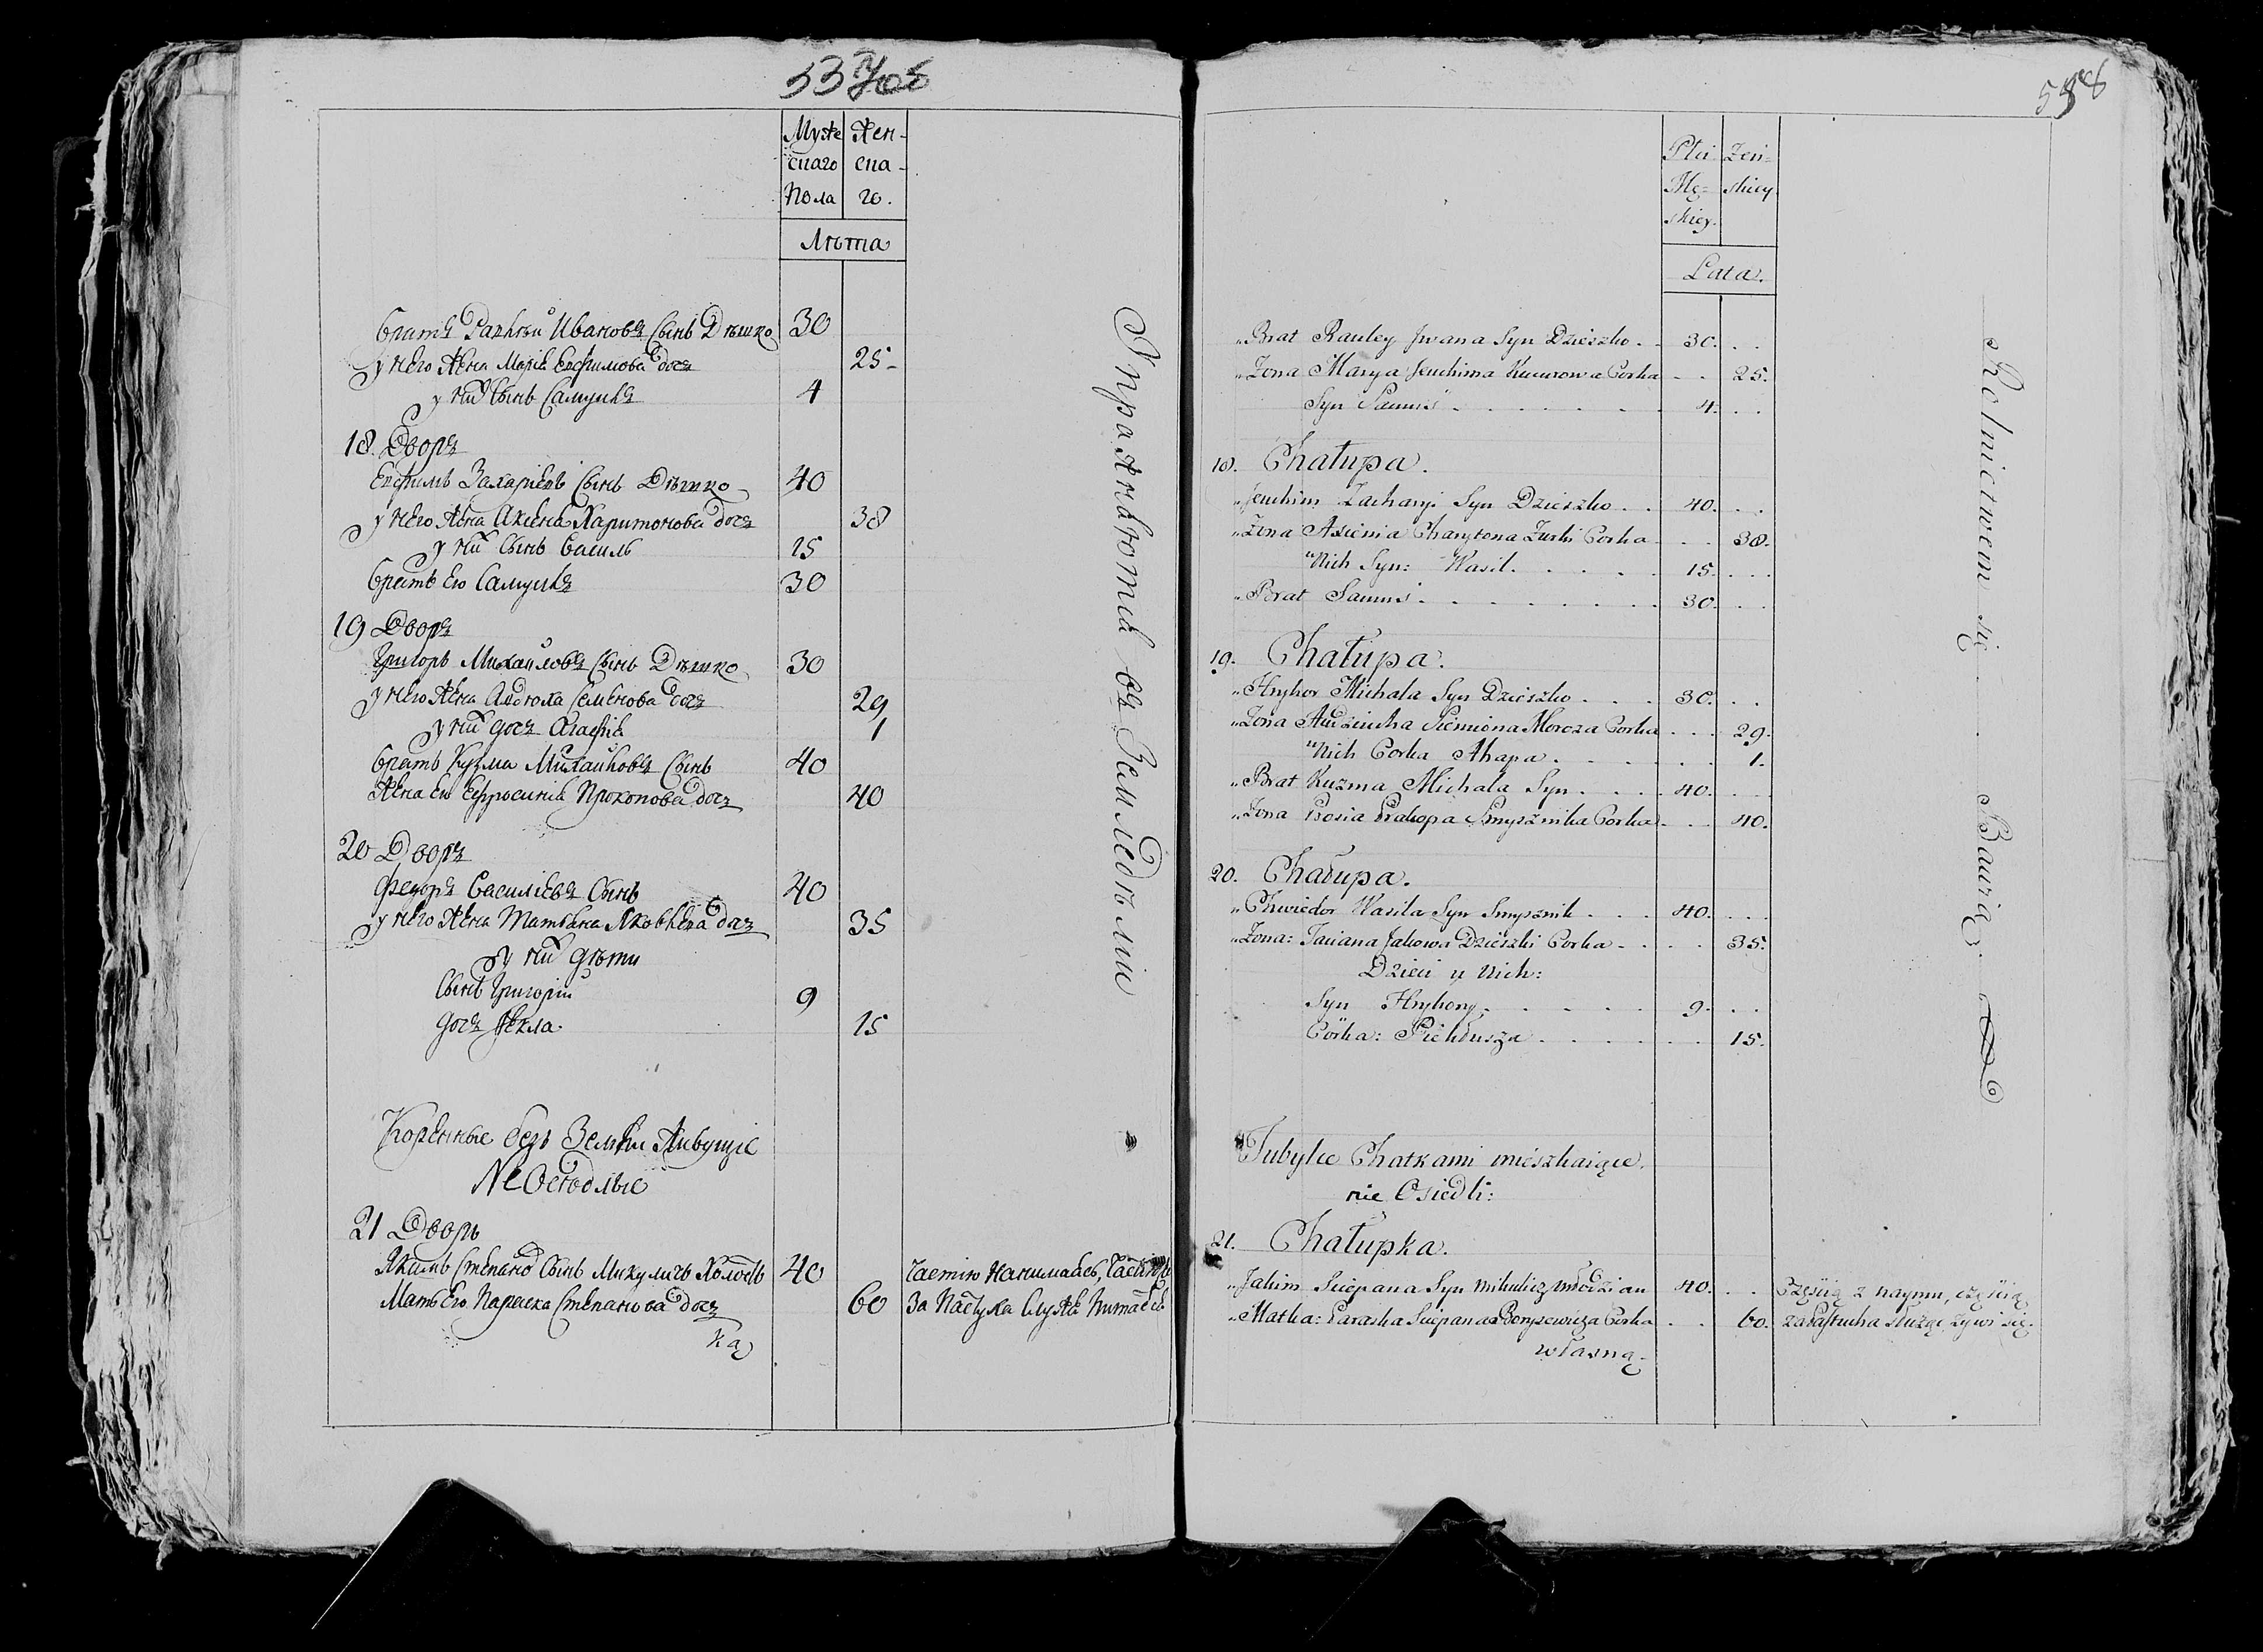 Мужескаго Пола
Женскаго.
Лѣта
братъ Ивановъ Сынъ Дѣшко 30
у него жена Марія Евфимова доч 25
у них Сынъ Самуилъ 4
18. Дворъ
Евфимъ Захаріевъ Сынъ Дѣшко 40
у него жена Аксенія Харитонова доч 38
у них Сынъ Василь 15
братъ Его Самуилъ 30
19 Дворъ
Григоръ Михайловъ Сынъ Дѣшко 30
у него жена Семенова доч 29
у них доч Агафія 1
братъ Кузма Михайловъ Сынъ 40
жена Его Ефросинія Прокопова доч 40
20 Дворъ
Федоръ Василіевъ Сынъ 40
у него жена Татьяна Яковлева доч 35
у них дѣти
Сынъ Григорій 9
доч Фекла 15
Упражняются въ Земледѣліи
Коренные безъ Земли Живущіе
Не Оседлые
21 Дворъ
Якимъ Степанов Сынъ Микуличъ 40 частію
Мать Его Параска Степанова доч 60 За Пастуха
Płci Męskiey.
Żeńskiey.
Lata.
Brat Jwana Syn Dzieszko 30.
Żona Marya Jeuchima Corka 25.
Syn Samuś 4.
18. Chałupa.
Jeuchim Zacharyi Syn Dzieszko 40.
Żona Axienia Charytona Żurki Corka 38.
u Nich Syn: Wasil. 15.
Brat Samuś 30.
19. Chałupa.
Hryhor Michała Syn Dzieszko 30.
Żona Siemiona Corka 29.
u Nich Corka Ahapa. 1.
Brat Kuzma Michała Syn 40.
Żona Prosia Prakopa Smyżnika Corka 40.
20. Chałupa.
Chwiedor Wasila Syn Smyżnik 40.
Żona: Taciana Jakowa Dzieszki Corka 35.
Dzieci u Nich:
Syn Hryhory 9.
Córka: 15.
Rolnictwem się Bawią.
Tubylce Chatkami mieszkaiące.
nie Osiedli:
21. Chałupka.
Jakim Sciepana Syn Mikulicz młodzian 40. Częścią z naymu, częścią
Matka: Paraska Sciepana Borysewicza Corka 60. za Pastucha służąc żywi się.
własną.